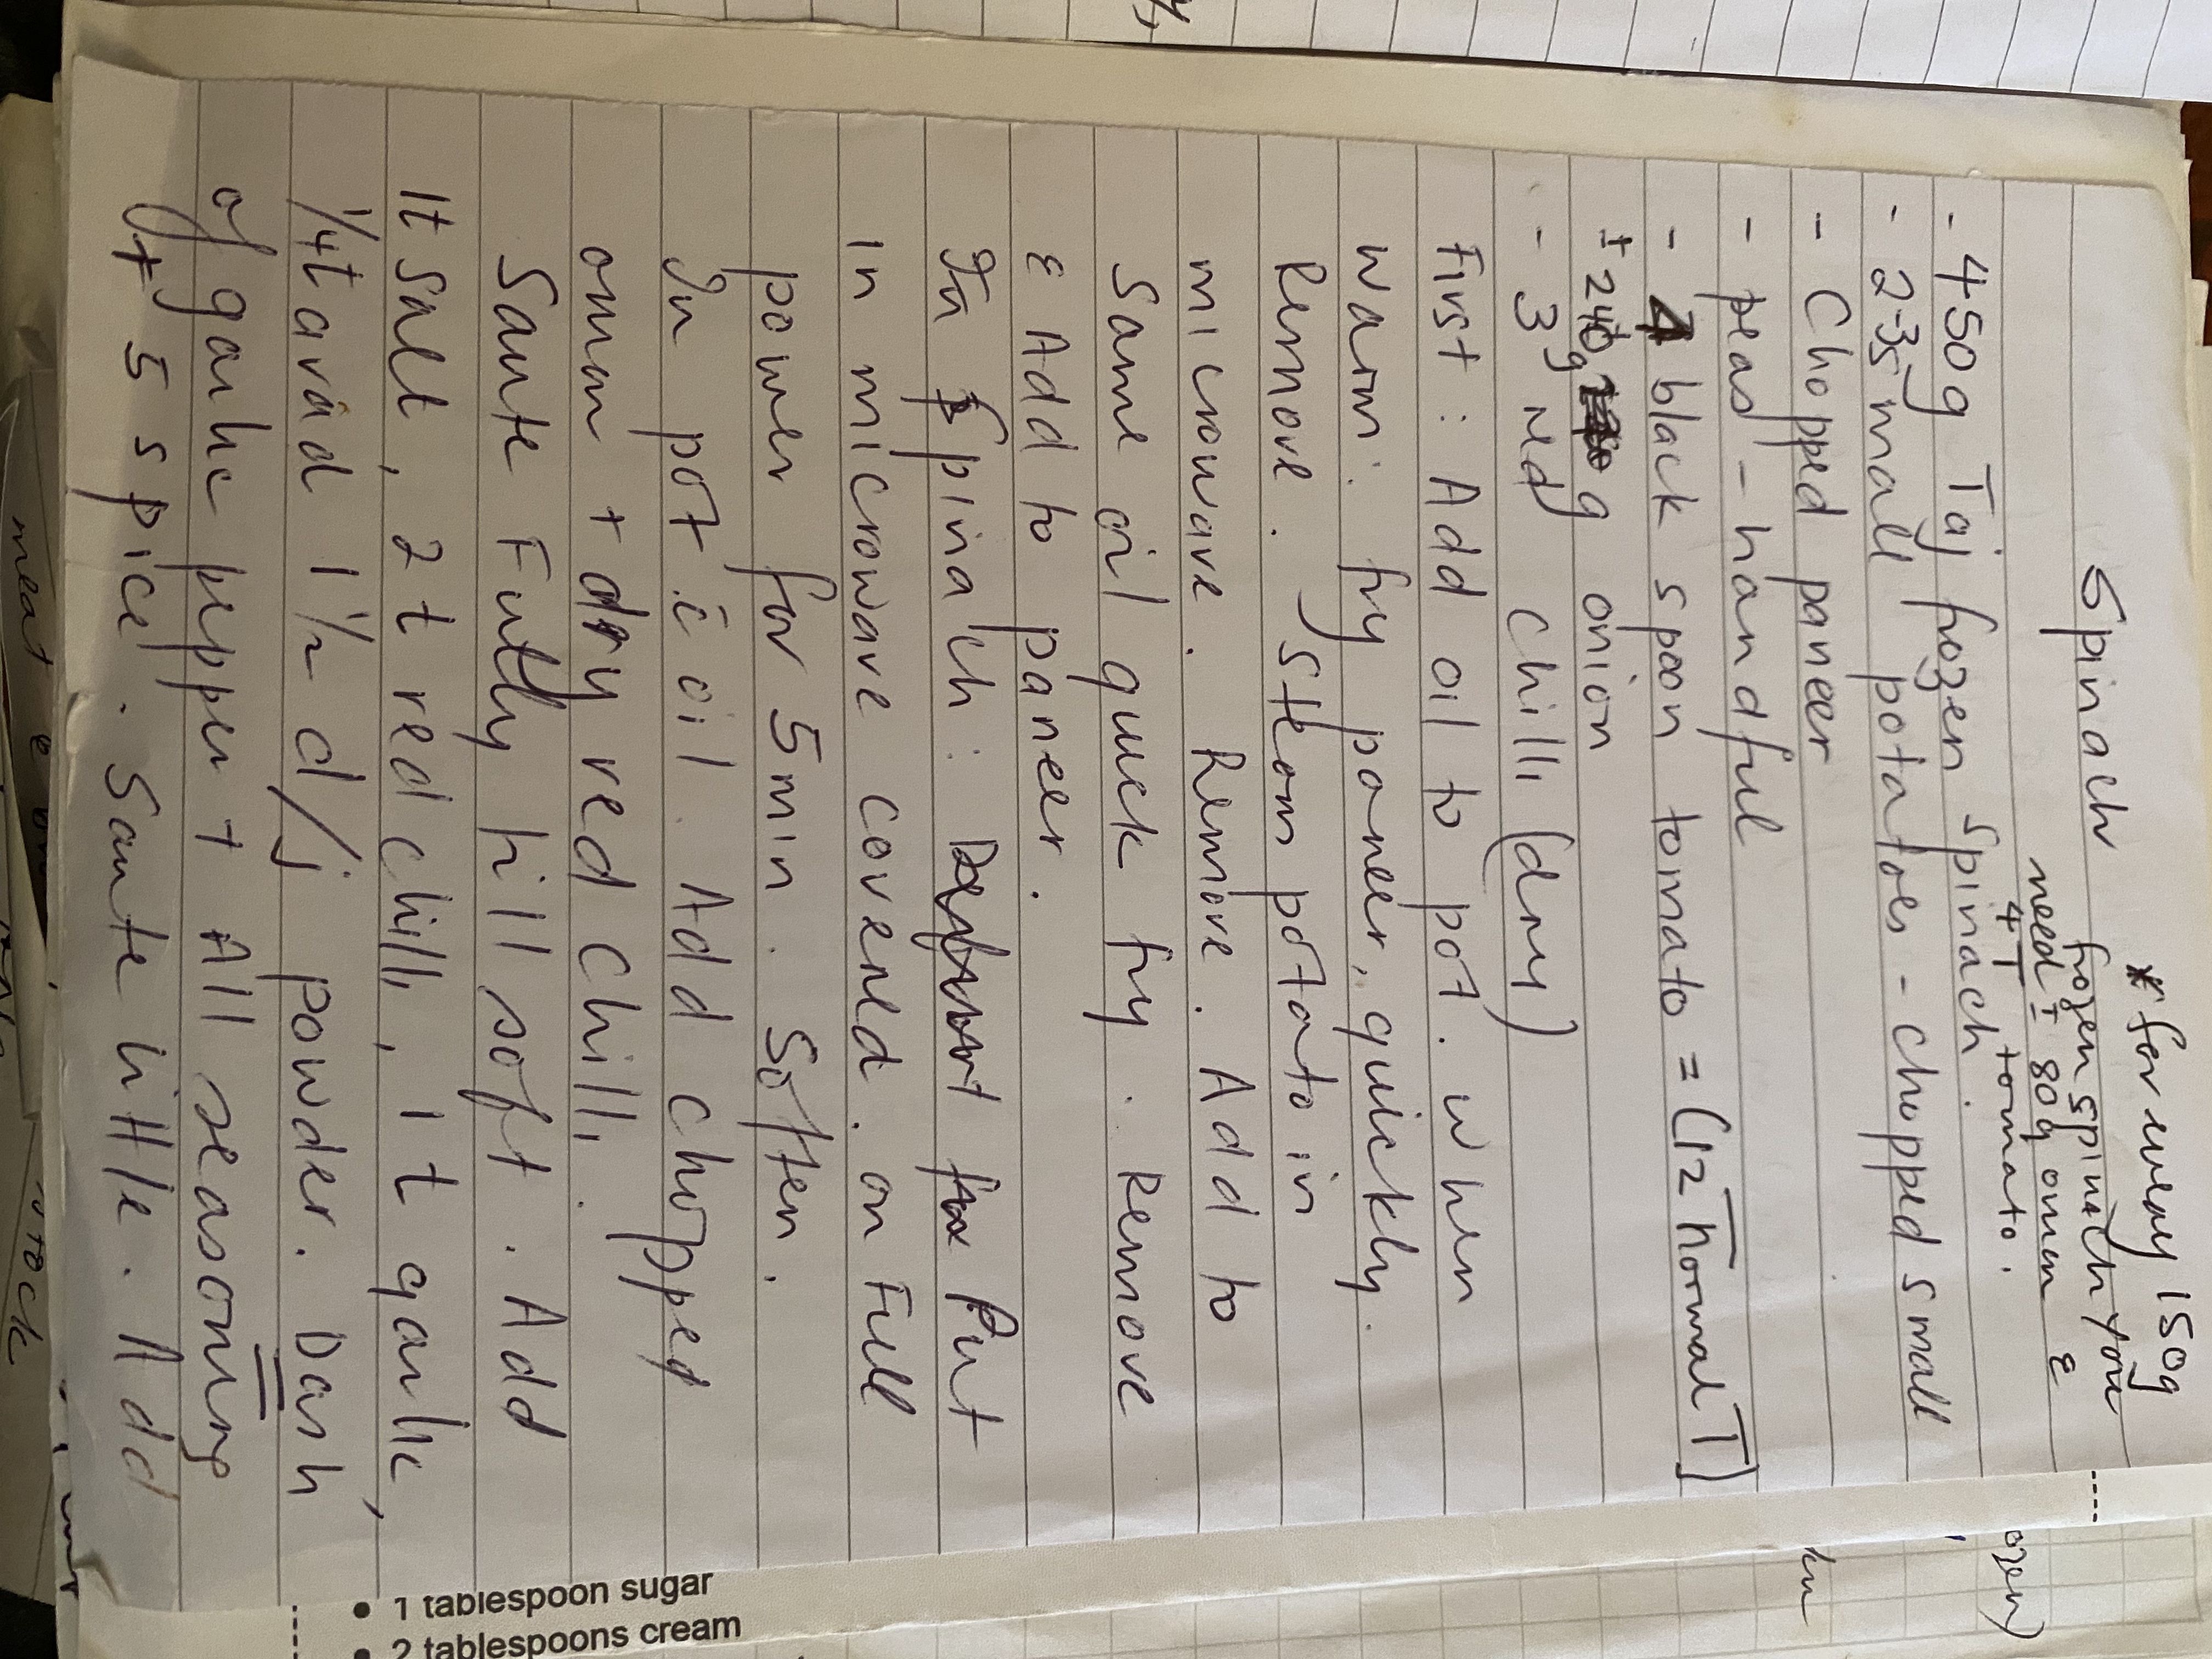 Spinach
* for every 150g
frozen spinach you
need ± 80g onion &
4T tomato.
- 450g Taj frozen spinach.
- 2-3 small potatoes - chopped small
- Chopped paneer
- peas - handful
- 4 black spoon tomato = (12 normal T)
± 240g g onion
- 3 red chilli (dry)
First: Add oil to pot. when
warm: fry paneer, quickly.
Remove. Steam potato in
microwave. Remove. Add to
same oil quick fry. Remove
& Add to paneer.
In Spinach: Defrost Put
in microwave covered. on Full
power for 5min. Soften.
In pot c̄ oil. Add chopped
onion + dry red chilli.
Saute Fully till soft. Add
1t salt, 2t red chilli, 1t garlic,
1/4t avad 1 1/2 d/j powder. Dash
of garlic pepper + All seasoning
+ 5 spice. Saute little. Add
1 tablespoon sugar
2 tablespoons cream
meat
stock